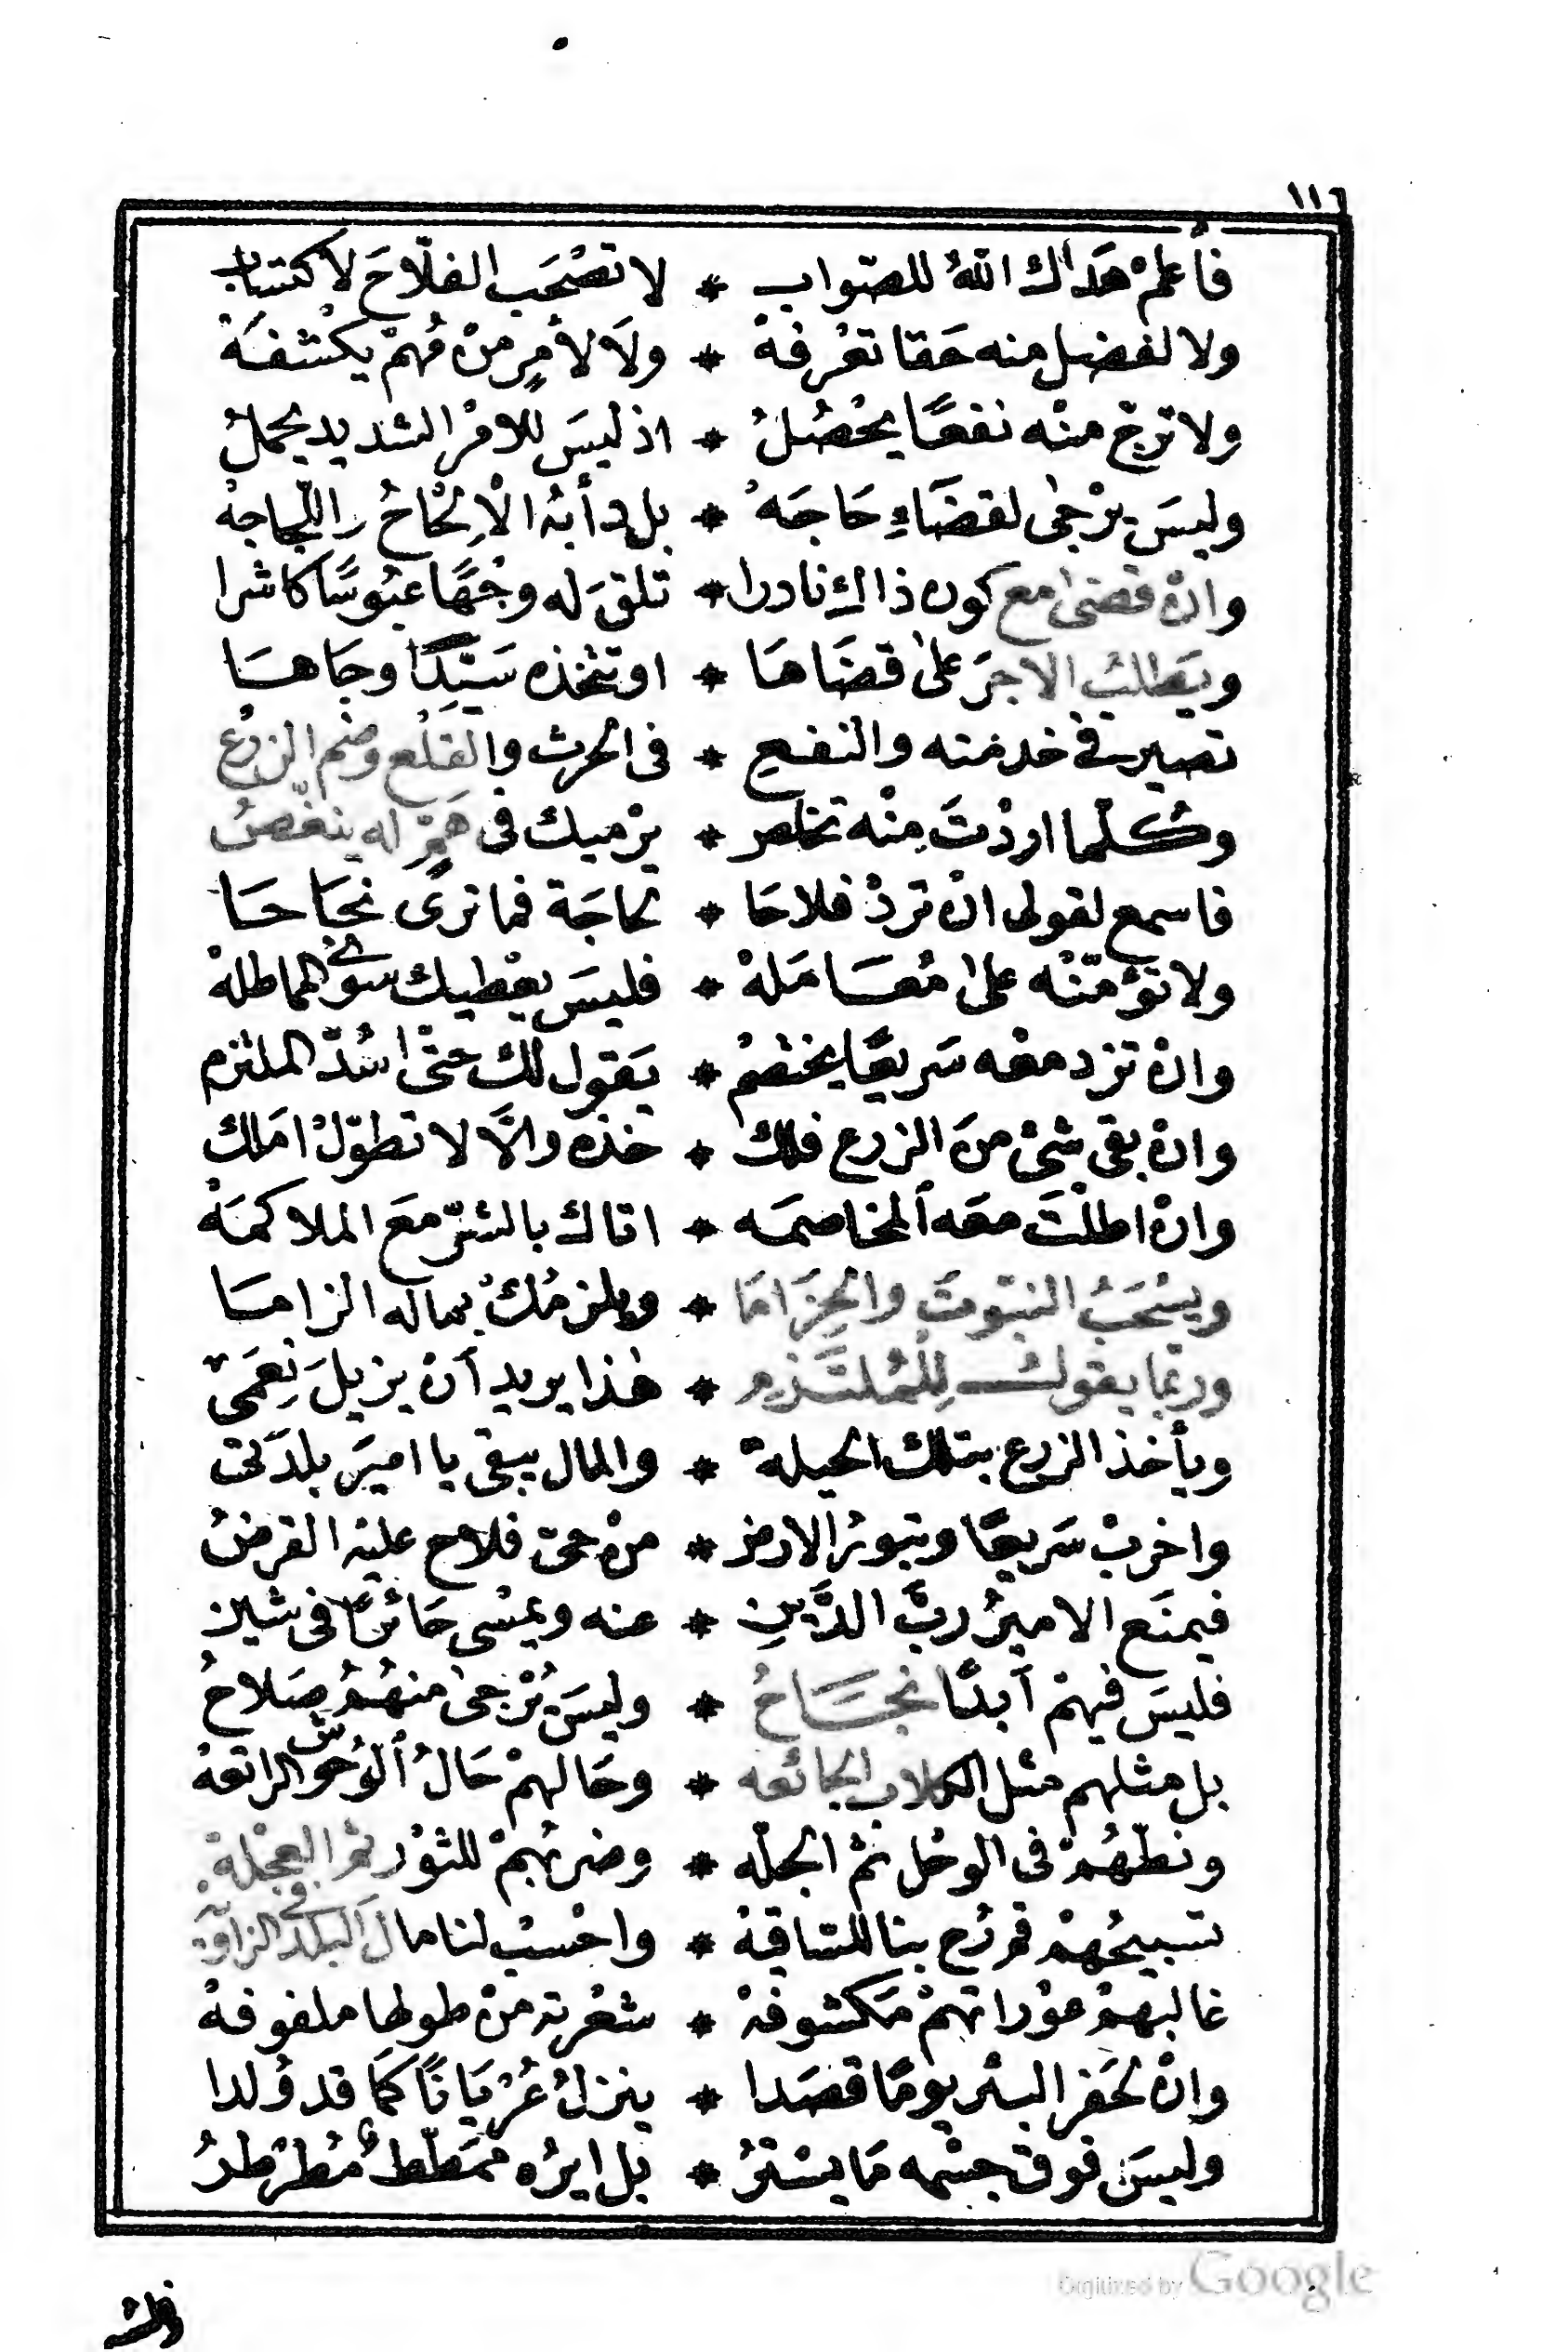 ١١٦
فأعلمْ هَداك اللهُ للصّواب * لا تصْحَب الفلّاحَ لاكتساب
ولا لفضل منه حَقا تعْرفهْ * ولَا لأمْرٍ منْ مُهمّ يكْشفَهْ
ولا ترَجّ منْه نفعًا يحْصُلُ * اذ ليسَ للامْر الشديد يحملُ
وليسَ يرْجٰى لقضَاءِ حَاجَهْ * بل دأبهُ الْاِلحْاحُ واللّجاجهْ
وانْ قضىٰ مع كون ذاك نادرا * تلقىَ له وجْهًا عبُوسًا كاشرا
ويَطلبُ الاجرَ علىٰ قضَاهَا * او تتْخذه سَيّدًا وجَاهَا
تصير فى خدمته والنفعِ * فى الحرث والقلْع وضم الزرْع
وكلّما اردْتَ مِنْه تخلص * يرْميك فى همّ له ينغّصُ
فاسمع لقولى انْ تردْ فلاحَا * لحاجَة فما ترىً نجَاحَا
ولا تؤمّنْه علىٰ مُعَامَلهْ * فليسَ يعْطيك سوى المماطلهْ
وانْ تزد معْه سَريعًا يخْتصمْ * يَقول لك حتىّ اسُدّ الملتزم
وانْ بقى شئْ منَ الزرع فلك * خذْه والَّا لا تطوّلْ امَلك
وانْ اطلْتَ معَه المخاصمَه * اتاك بالشرّ معَ الملاكمَهْ
ويسْحَبُ النبّوتَ والحِزَامَا * ويلزمُكْ بماله الزاما
وربّما يقولُ لِلْمُلْتَزمِ * هٰذا يريد أنْ يزيلَ نِعَمىْ
ويأخذ الزرع بتلك الحيلةْ * والمال يبقى يا اميرَ بلدَتى
واخربْ سَريعًا وتبورُ الارض * منْ حىّ فلاح عليْه القرضُ
فيمنَع الاميرُ ربَّ الدَّينِ * عنه ويمْسى حَائرًا فى شين
فليسَ فيهمْ أبدًا نجَاحُ * وليسَ يُرْجىٰ منهُمُ صَلاحُ
بل مثلهم مثل الكلاب الجائعه * وحَالهمْ حَالُ الوُحوش الراتعهْ
ونطّهُمْ فى الوحْل ثمْ الجلّه * وضرْبُهمْ للثوْر ثم العجْلة
تسبيحُهمْ قم رُح بنا للسّاقيهْ * واحْسبْ لنا مالَ البَلَد فى الزاويَه
غالبهمْ عوْراتهمْ مَكشوفهْ * شعْرتهْ منْ طولها ملفوفهْ
وانْ لحَفر البئر يومًا قصَدا * ينزلُ عُرْيَانًا كمَا قد وُلدا
وليسَ فوق جسْمه مَا يسْترُ * بل ايرُه ممَطّطٌ مُطَرْطرُ
Digitized by Google